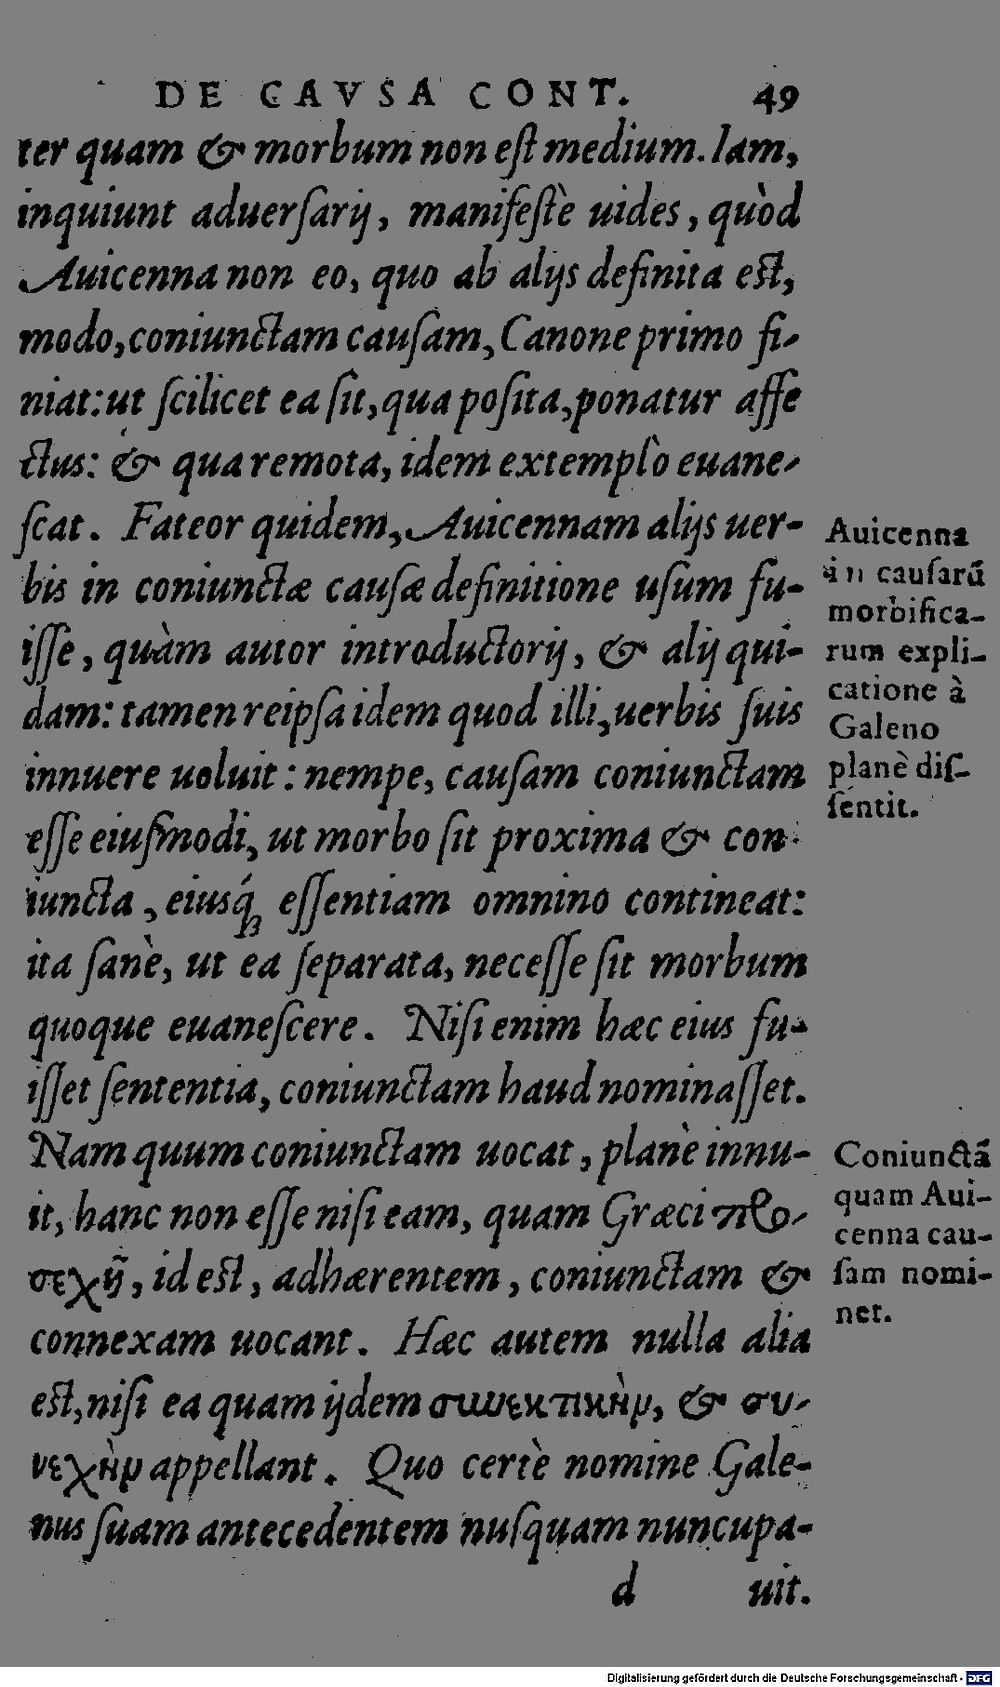 DE CAVSA CONT. 49
ter quam & morbum non eſt medium. Iam,
inquiunt aduerſarij, manifeſtè uides, quòd
Auicenna non eo, quo ab alijs definita eſt,
modo, coniunctam cauſam, Canone primo fi-
niat: ut ſcilicet ea ſit, qua poſita, ponatur affe
ctus: & qua remota, idem extemplò euane-
ſcat. Fateor quidem, Auicennam alijs uer-
bis in coniunctæ cauſæ definitione uſum fu-
iſſe, quàm autor introductorij, & alij qui-
dam: tamen reipſa idem quod illi, uerbis ſuis
innuere uoluit: nempe, cauſam coniunctam
eſſe eiuſmodi, ut morbo ſit proxima & con-
iuncta, eiusq́ꝫ eſſentiam omnino contineat:
ita ſanè, ut ea ſeparata, neceſſe ſit morbum
quoque euaneſcere. Niſi enim hæc eius fu-
iſſet ſententia, coniunctam haud nominaſſet.
Nam quum coniunctam uocat, planè innu-
it, hanc non eſſe niſi eam, quam Græci προ-
σεχῆ, id eſt, adhærentem, coniunctam &
connexam uocant. Hæc autem nulla alia
eſt, niſi ea quam ijdem συνεκτικὴν, & συ-
νεχὴν appellant. Quo certè nomine Gale-
nus ſuam antecedentem nuſquam nuncupa-
d uit.
Auicenna
in cauſarũ
morbifica-
rum expli-
catione à
Galeno
planè diſ-
ſentit.
Coniunctã
quam Aui-
cenna cau-
ſam nomi-
net.
Digitalisierung gefördert durch die Deutsche Forschungsgemeinschaft - DFG